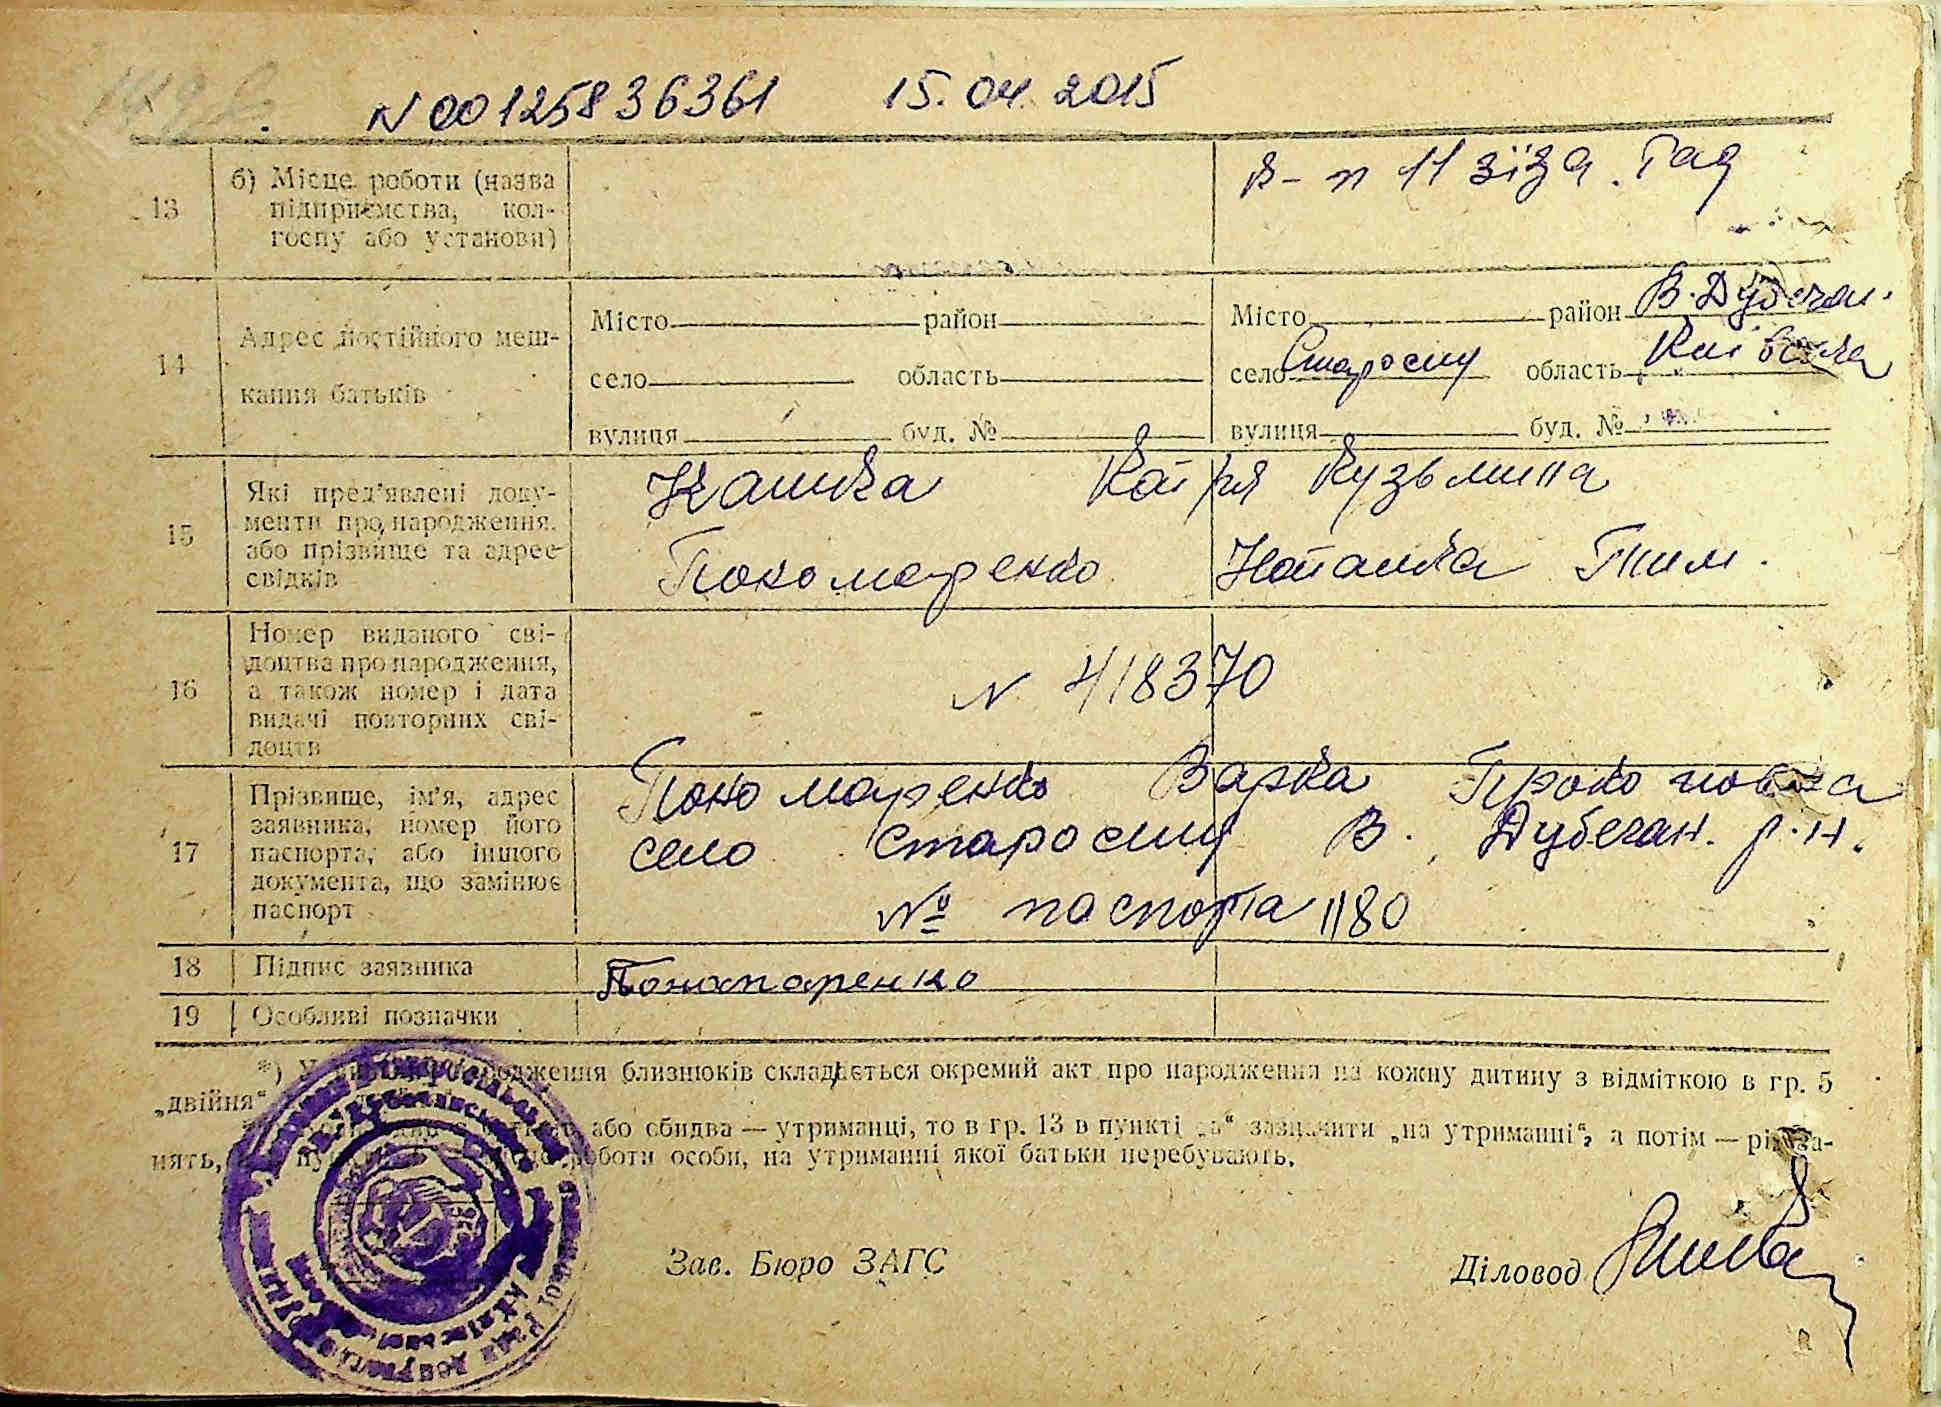 N 00125836361 15.04.2015
13 б) Місце роботи (назва підприємства, колгоспу або установи)
14 Адрес постійного мешкання батьків
Місто район Місто район В. Дубечан.
село область село Старосілу область Київська
вулиця буд. № вулиця буд. №
15 Які пред'явлені документи про народження, або прізвище та адрес свідків
Катря Кузьмина
Пономаренко Наталка Тим.
16 Номер виданого свідоцтва про народження, а також номер і дата видачі повторних свідоцтв
N 418370
17 Прізвище, ім'я, адрес заявника, номер його паспорта, або іншого документа, що замінює паспорт
Пономаренко Варка Прокоповна
село Старосілу В. Дубечан. р-н.
№ паспорта 1180
18 Підпис заявника Пономаренко
19 Особливі позначки
*) народження близнюків складається окремий акт про народження на кожну дитину з відміткою в гр. 5
„двійня“
або обидва — утриманці, то в гр. 13 в пункті „а“ зазначити „на утриманні“, а потім —
нять, роботи особи, на утриманні якої батьки перебувають.
Зав. Бюро ЗАГС Діловод